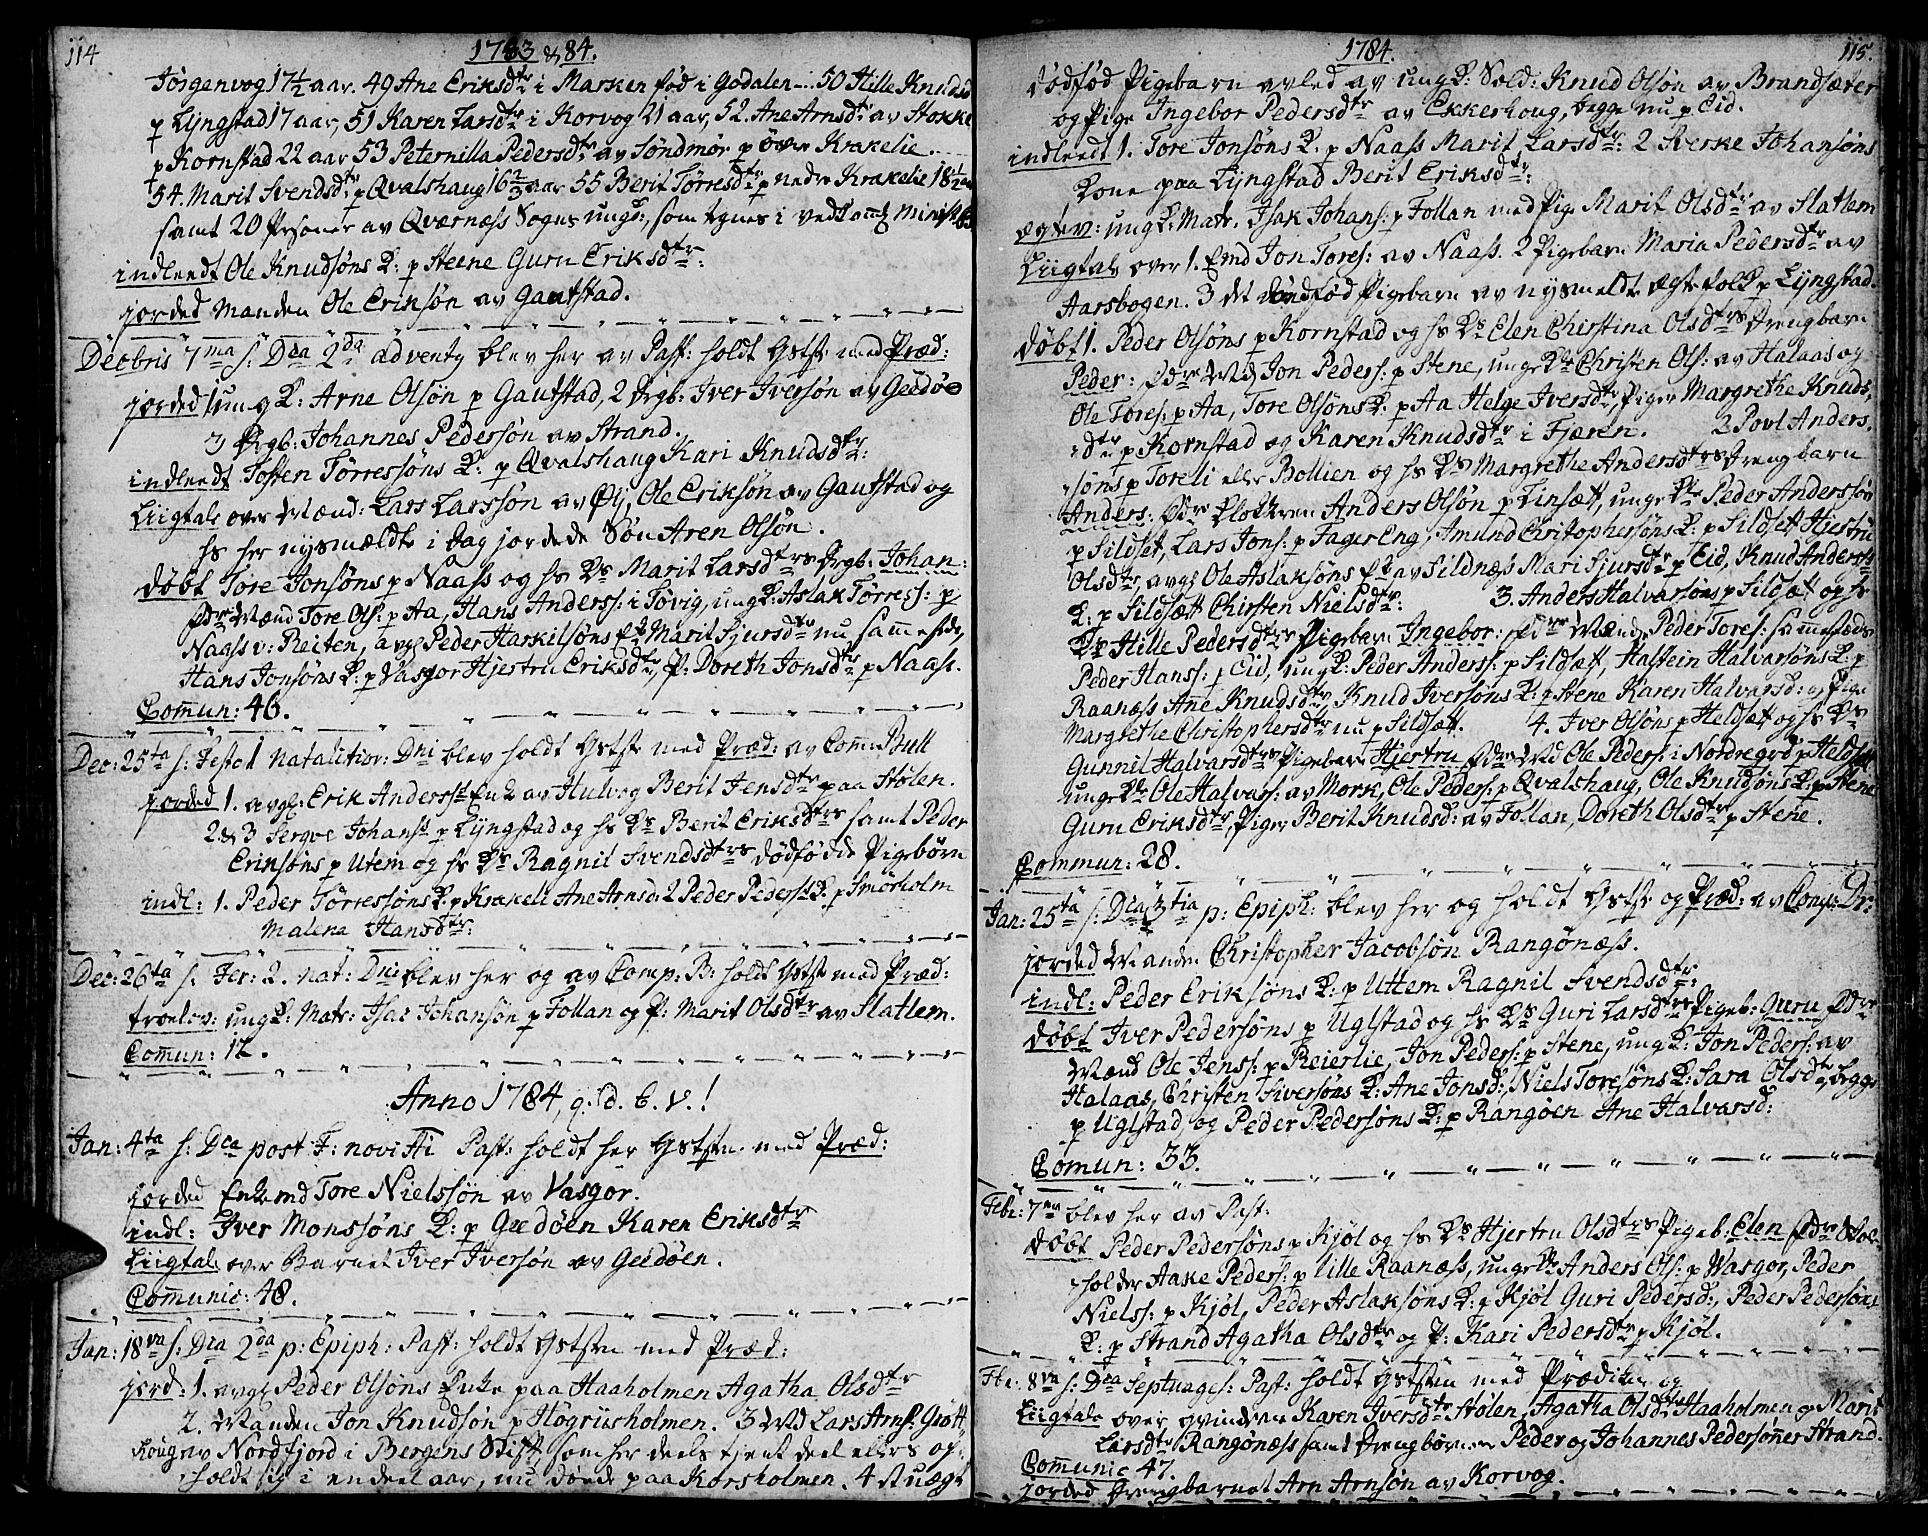 114
1783 & 84.
Jørgenvog 17½ aar. 49 Ane Eriksdtr i Marken fød i Godalen 50 Hille Knudsd
p Lyngstad 17 aar, 51 Karen Larsdtr i Korvog 21 aar, 52. Ane Arnsdtr av Stokke
p Kornstad 22 aar 53 Peternilla Pedersdtr av Søndmør p øvre Krakelie
54. Marit Svendsdtr p Qvalshaug 16 aar 55 Berit Tørresdtr p nedre Krakelie 18½ aar
samt 20 Psoner av Qværnæss Sogns
indleedt Ole Knudsøns K: p Steene Guru Eriksdtr:
jorded Manden Ole Eriksøn av Gautstad.
Decbris 7ma s: Dca 2da adventq blev her av Past: holdt Gstst med Præd:
jorded 1 ung K: Arne Olsøn p Gautstad, 2 Drgb: Iver Iversøn av Geedøe
3 Drgb: Johannes Pedersøn av Strand.
indleedt Tosten Tørressøns K: p Qvalshaug Kari Knudsdtr:
Liigtale over Mænd: Lars Larssøn av Øy, Ole Eriksøn av Gautstad og
hs her nysmældte i dag jordede Søn Aren Olsøn.
døbt Tore Jonsøns p Naass og hs Ks Marit Larsdtrs Drgb: Johan:
Fdre Mænd Tore Ols: p Aa, Hans Anderss: i Tøvig, ung K: Aslak Tørress: p
Naass v: Reiten, avg Peder Harkilsøns E: Marit Sjursdtr nu samesteds,
Hans Jonsøns K: p Vasgor Hjertru Eriksdtr, P: Doreth Jonsdtr p Naass.
Commun: 46.
Dec: 25ta s: Festo 1 Natalitior: Dni blev holdt Gstst med Præd: av Comp Bull
jorded 1. avgl: Erik Anderss Enke av Hulvog Berit Jensdtr paa Stølen.
2 & 3 Sergve Johanss p Lyngstad og hs Ks Berit Eriksdtrs samt Peder
Eriksøns p Utem og hs Ks Ragnil Svendsdtrs dødfødde Pigebørn
indl: 1. Peder Tørressøns K: p Krakeli Ane Arnsd: 2 Peder Pederss K: p Smørholm
Malena Hansdtr:
Dec: 26ta s: Fer: 2. Nat: Dni blev her og av Comp: B: holdt Gstst med Præd:
troelov: ung K: Matr: Isac Johansøn p Follan og P: Marit Olsdtr av Slatlem.
Commun: 12.
Anno 1784, q: d. b. v.!
Jan: 4ta s: Dca post F: novi Ai Past: holdt her Gststen med Præd:
jorded Enkemd Tore Nielssøn av Vasgor.
indl: Iver Monssøns K: p Geedøen Karen Eriksdtr
Liigtale over Barnet Iver Iversøn av Geedøen.
Comunic: 48.
Jan: 18va s: Dca 2da p: Epiph: Past: holdt Gststen med Præd:
jord: 1. avgl Peder Olsøns Enke paa Haaholmen Agatha Olsdtr
2. Manden Jon Knudsøn p Høgrüsholmen. 3 Md Lars Arns: Grøtt
houg av Nordfjord i Bergens Stift, som her deels tjent deel ellers op-
holdt sig i en deel aar, nu døde paa Korsholmen. 4 st uægt
115.
1784.
dødfød Pigebarn avled av ung K: Sold: Knud Olsøn av Brandsæter
og Pige Ingebor Pedersdtr av Ekkerhoug, begge nu p Eid.
indleedt 1. Tore Jonsøns K: p Naass Marit Larsdtr: 2 Sverke Johansøns
Kone paa Lyngstad Berit Eriksdtr:
egtev: ung K: Matr. Isak Johans: p Follan med Pige Marit Olsdtr av Slatlem
Liigtale over 1. Emd Jon Tores: av Naass. 2 Pigebarn Maria Pedersdtr av
Aarsbogen. 3 det dødfød Pigebarn av nysmeldte Egtefolk p Lyngstad.
døbt 1. Peder Olsøns p Kornstad og hs Ks Elen Chirstina Olsdtrs Drengbarn
Peder: Fdre Md Jon Peders: p Stene, unge Kr Christen Ols: av Halaas og
Ole Tores: p Aa, Tore Olsøns K: p Aa Helge Iversdtr, Piger Margrethe Knuds,
dtr p Kornstad og Karen Knudsdtr i Fjæren. 2 Povl Anders,
søns p Toreli eller Bollien og hs Ks Margrethe Andersdtrs Drengbarn
Anders: Fdre Klokkeren Anders Olsøn p Linsætt, unge Kr Peder Anderssøn
p Sildset, Lars Jons: p FagerEng, Amund Christophersøns K: p Sildset Hjertru
Olsdtr, avgl Ole Aslaksøns E av Sildnæs Mari Sjursdtr p Eid, Knud Anderss
K: p Sildsæt Chirsten Nielsdtr: 3. Anders Halvarsøns p Sildsæt og hs
Ks Hille Pedersdtrs Pigebarn Ingebor: Fdre Mænd Peder Tores: sammesteds
Peder Hanss: p Eid, ung K: Peder Anderss: p Sildsætt, Halstein Halvarsøns K: p
Raanæss Anne Knudsdtr, Knud Iversøns K: p Stene Karen Halvarsd: og Pige
Margrethe Christophersdtr nu p Sildsæt. 4. Iver Olsøns p Heldsæt og hs Ks
Gunnil Halvarsdtrs Pigebarn Hjertru Fdre Md Ole Peders: i Nordregrd p Heldsæt
unge Kr Ole Halvars: av Mork, Ole Peders: p Qvalshaug, Ole Knudsøns K: p Stene
Guru Eriksdtr, Piger Berit Knudsd: av Follan, Doreth Olsdtr p Stene.
Commun: 28.
Jan: 25ta s: Dca 3tia p: Epiph: blev her og holdt Gstst og Præd: av Comp: Br:
jorded Manden Christopher Jacobsøn Rangønæss.
indl: Peder Eriksøns K: p Uttem Ragnil Svendsdtr:
døbt Iver Pedersøns p Uglstad og hs Ks Guri Larsdtrs Pigeb: Guru Fdre
Mænd Ole Jens: p Reierlie, Jon Peders: p Stene, ung K: Jon Peders: av
Halaas, Christen Siversøns K: Ane Jonsd:, Niels Toresøns K: Sara Olsdtr, begge
p Uglstad og Peder Pedersøns K: p Rangøen Ane Halvarsd:
Comun: 33.
Febr: 7ma blev her av Past:
døbt Peder Pedersøns p Kjøl og hs Ks Hjertru Olsdtrs Pigeb: Elen Fdre
holder Aake Peders: p Lille Raanæss, unge Kr Anders Ols: p Vasgor, Peder
Niels: p Kjøl, Peder Aslaksøns K: p Kjøl Guri Pedersd:, Peder Pedersøns
K: p Strand Agatha Olsdtr og P: Kari Pedersdtr p Kjøl.
Fbr: 8va s: Dca Septuages: Past: holdt Gststen med Prædiken og
Liigtale over qvinderne Karen Iversdtr Stølen, Agatha Olsdtr Haaholmen og Marit
Larsdtr Rangønæss samt Drengbørnene Peder og Johannes Pedersønner Strand.
Communic 47.
jorded Drengbarnet Arn Arnsøn av Korvog.